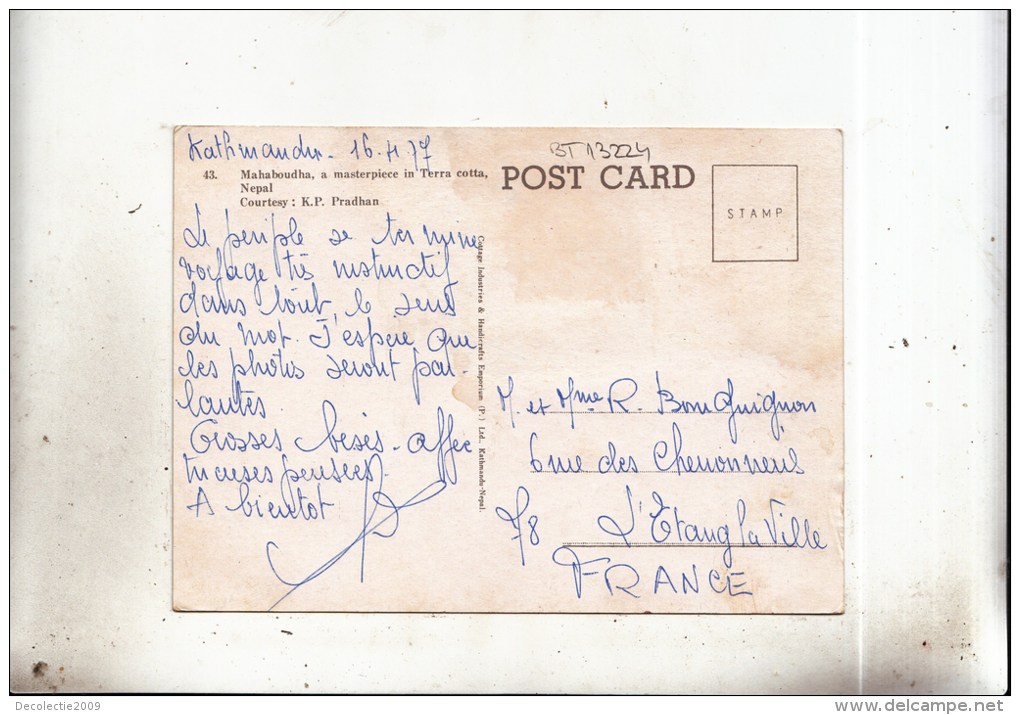 Kathmandu - 16.4.77
BT 13224
43. Mahaboudha, a masterpiece in Terra cotta,
Nepal
Courtesy : K.P. Pradhan
POST CARD
STAMP
Le periple se termine
voyage très instructif
dans tout le sens
du mot. J'espère que
les photos seront par-
lantes.
Grosses bises - affec
tueuses pensées
A bientot
Cottage Industries & Handicrafts Emporium (P.) Ltd., Kathmandu-Nepal.
M. et Mme R. Bourguignon
6 rue des
78 L'Etang la Ville
FRANCE
Decolectie2009
www.delcampe.net